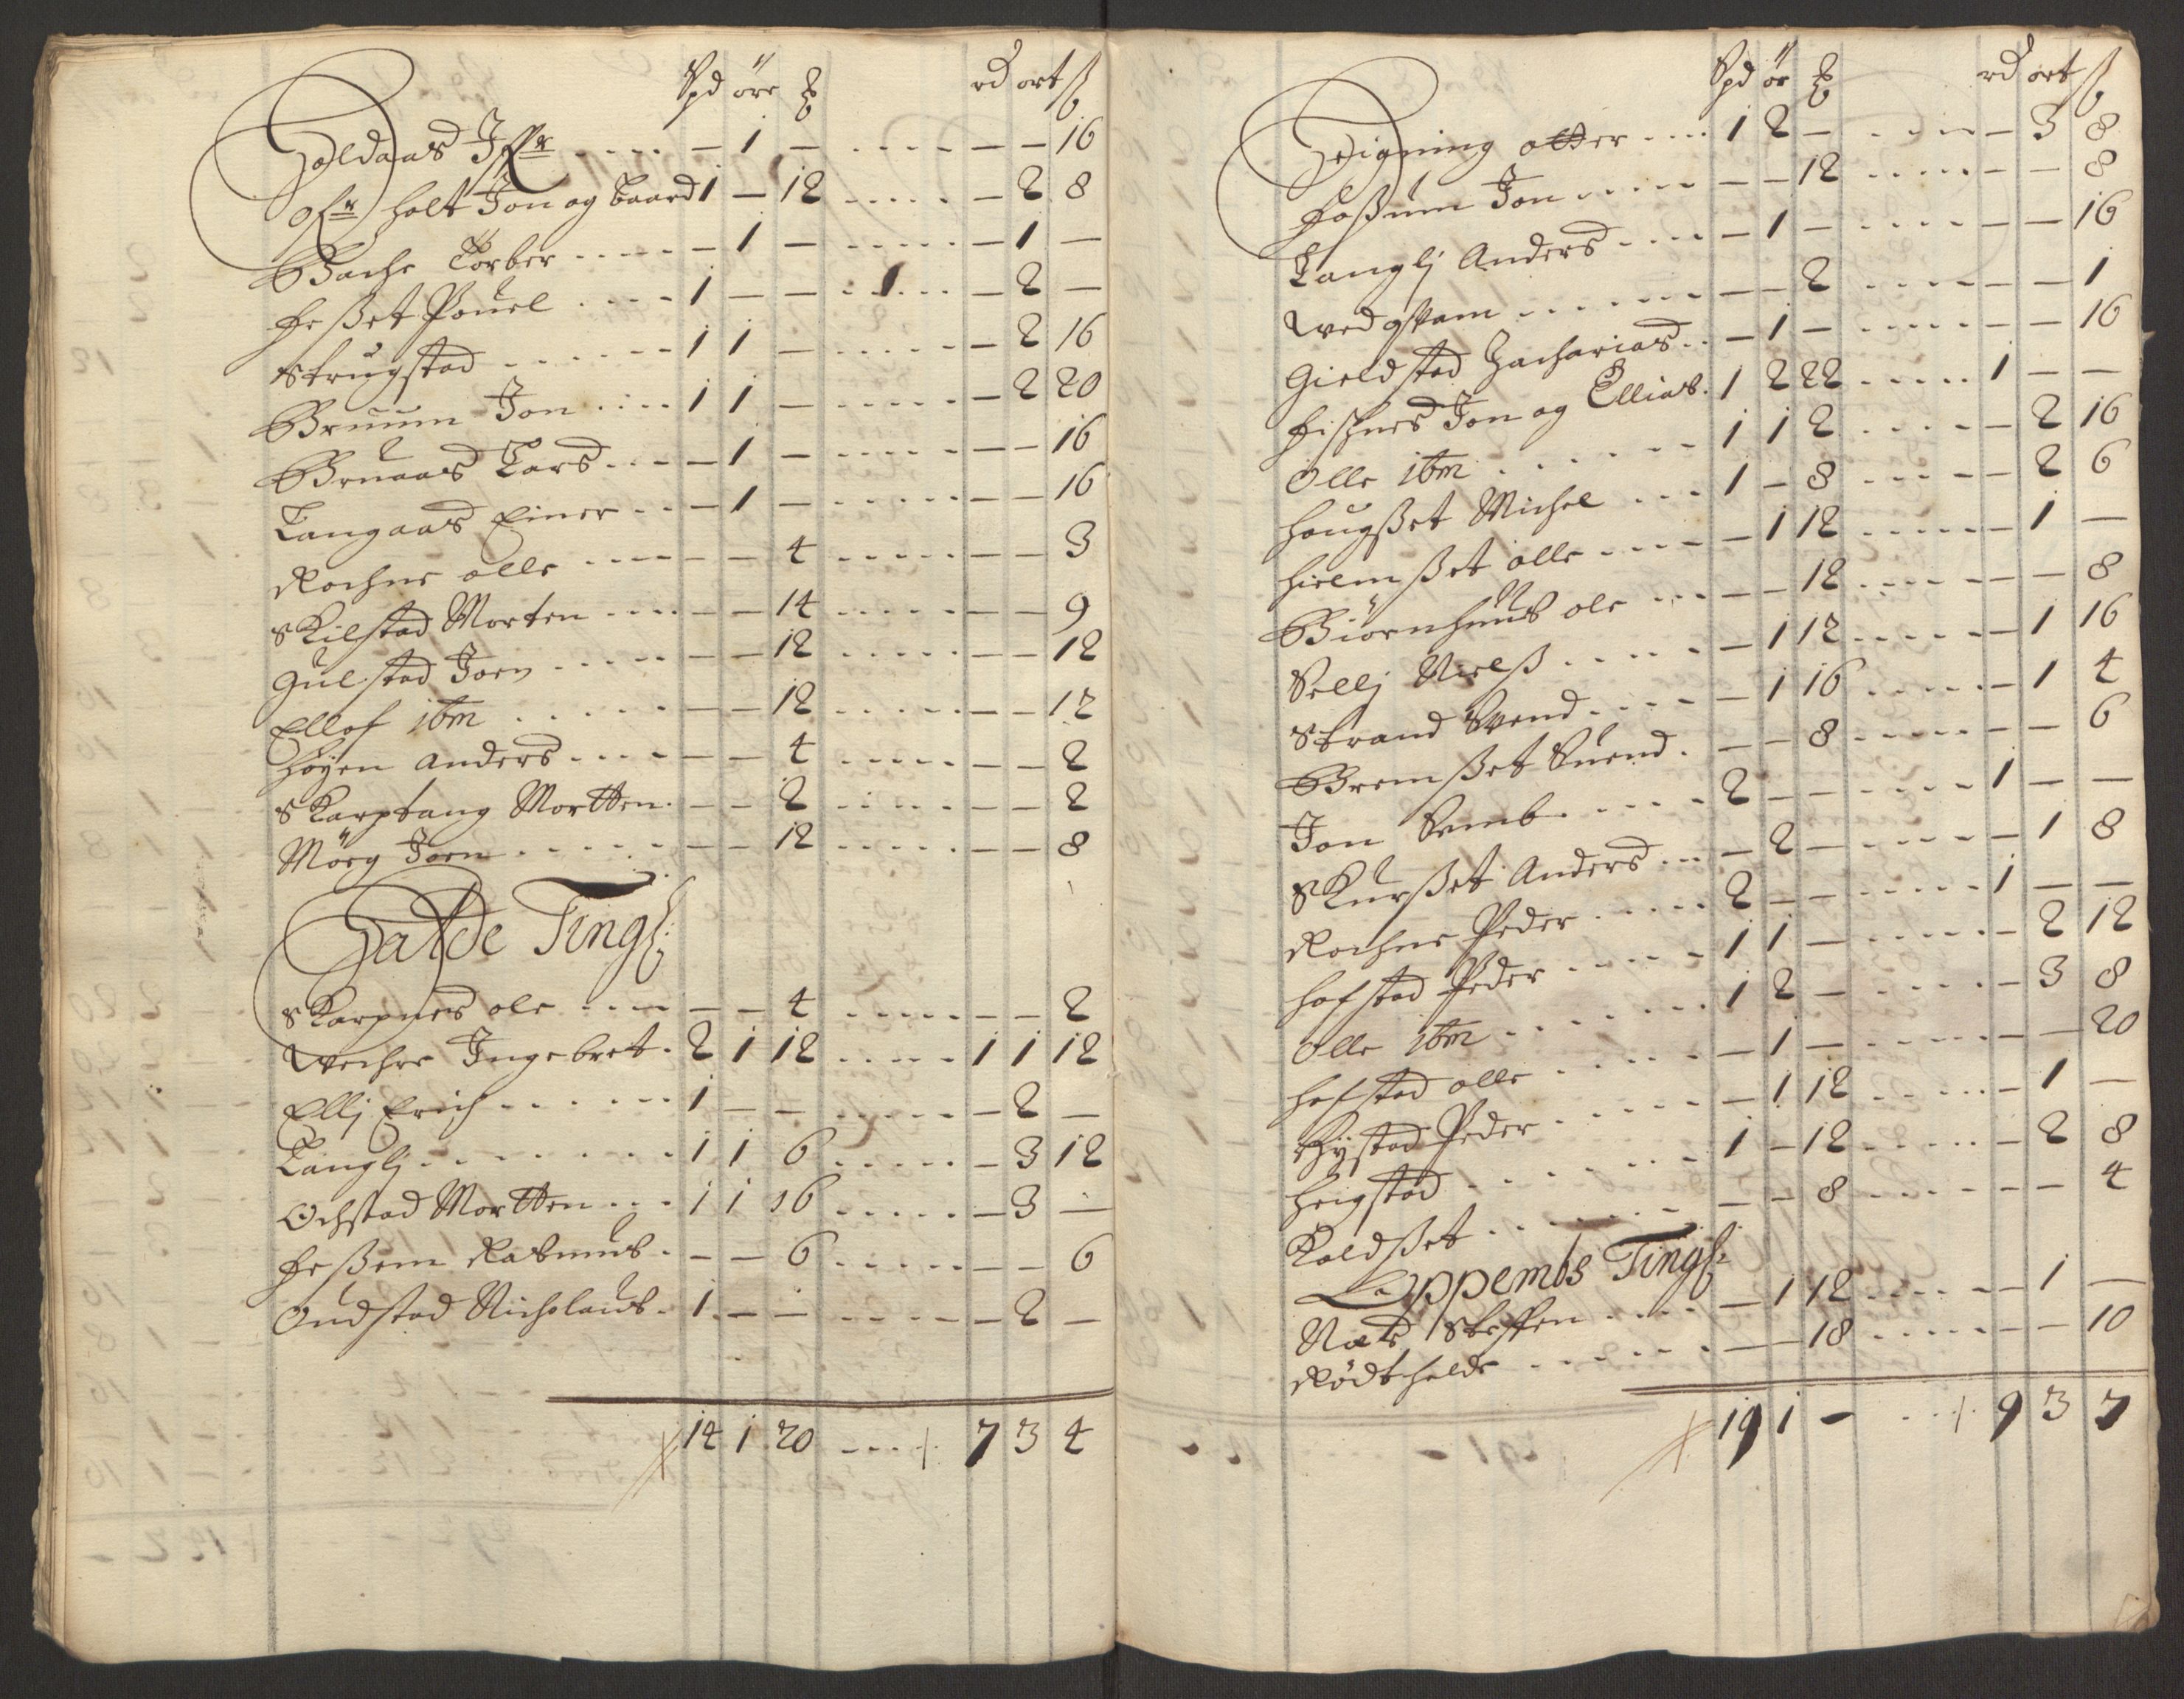 Spd öre ꝶ rd ort ß
Holdaas Iffr ..... – 1 – ..... – – 16
ofr holt Jon og baard 1 – 12 ..... – 2 8
Bachr Torber ..... – 1 – ..... – 1 –
feßet Pouel .... 1 – – ..... – 2 –
Strugstad ...... 1 1 – ..... – 2 16
Bruum Jon .... 1 1 – ..... – 2 20
Bruaas Lars ... – 1 – ..... – – 16
Langaas Einer .. – 1 – ..... – – 16
Rochne olle .... – – 4 ..... – – 3
Skilstad Morten .... – – 14 ..... – – 9
Gulstad Joen ..... – – 12 ..... – – 12
Ellof ibm ..... – – 12 ..... – – 12
höyen Anders .... – – 4 ..... – – 2
Skarptang Mortten . – – 2 ..... – – 2
Mörg Joen ...... – – 12 ..... – – 8
Halde Tingl:
Skarpnes ole .... – – 4 ..... – – 2
Wechre Ingebret . 2 1 12 ..... 1 1 12
Ellj Erich ...... 1 – – ..... – 2 –
Langlj ........ 1 1 6 ..... – 3 12
Ochstad Mortten ... 1 1 16 ..... – 3 –
feßem Rasmus . – – 6 ..... – – 6
Oudstad Nicholaus . 1 – – ..... – 2 –
14 1 20 .... 7 3 4
Spd ör ꝶ rd ort ß
Heigning otter .... 1 2 – ..... – 3 8
foßum Jon ..... – – 12 ..... – – 8
Langlj Anders .... – 1 – ..... – – 16
Wedgstam ...... – – 2 ..... – – 1
Gieldstad Zacharias .. – 1 – ..... – – 16
fischnes Jon og Ellias . 1 2 22 ..... 1 – –
Olle ibm ...... 1 1 2 ..... – 2 16
hougßet Michel ... 1 – 8 ..... – 2 6
hielmßet olle .... – 1 12 ..... – 1 –
Biörnhuus ole ... – – 12 ..... – – 8
Sellj Nielß ..... – 1 12 ..... – 1 16
Strand Svend .... – 1 16 ..... – 1 4
Bremßet Suend . – – 8 ..... – – 6
Jon Semb ..... 2 – – ..... 1 – –
Skurßet Anders ... – 2 – ..... – 1 8
Rochne Peder ..... 2 – – ..... 1 – –
hofstad Peder ..... 1 1 – ..... – 2 12
Olle ibm ....... 1 2 – ..... – 3 8
hofstad olle ..... – 1 – ..... – – 20
Hystad Peder ..... – 1 12 ..... – 1 –
heigstad ....... 1 – 12 ..... – 2 8
Koldßet ....... – – 8 ..... – – 4
Oppembs Tingl:
Næs Steffen .... – 1 12 ..... – 1 –
Rödtholde ...... – – 18 ..... – – 10
19 1 – ... 9 3 7